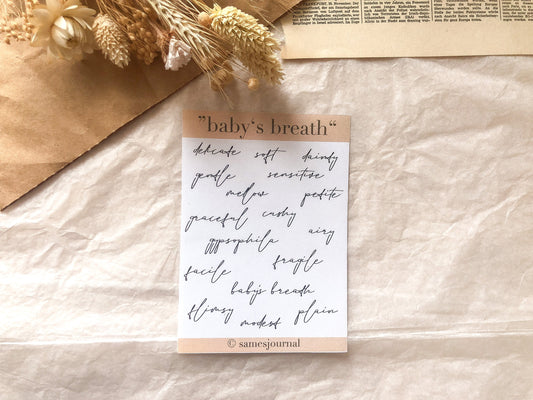 "baby's breath"
delicate soft dainty
gentle sensitive
mellow petite
graceful cushy
gypsophila airy
facile fragile
baby's breath
flimsy modest plain
© samesjournal